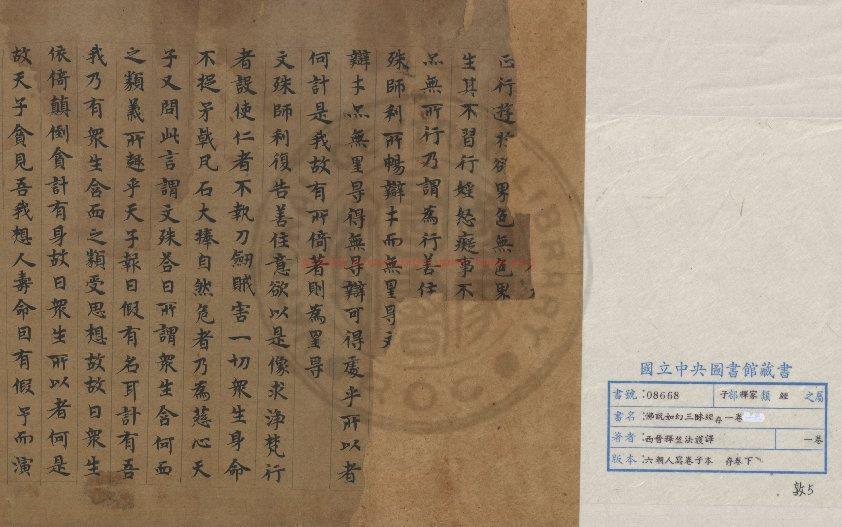 正行遊於欲界色無色界
生其不習行婬怒癡事不
亦無所行乃謂為行善住
殊師利所暢辯才而無罣㝵文
辯才亦無罣㝵得無㝵辯可得處乎所以者
何計是我故有所倚著則為罣㝵
文殊師利復告善住意欲以是像求淨梵行
者設使仁者不執刀劒賊害一切衆生身命
不捉矛戟瓦石大捧自然危者乃為慈心天
子又問此言謂文殊荅曰所謂衆生含何而
之類義所趣乎天子報曰假有名耳計有吾
我乃有衆生含而之類受思想故故曰衆生
依倚顛倒貪計有身故曰衆生所以者何是
故天子貪見吾我想人壽命因有假号而演
國立中央圖書館藏書
書號：08668 子部釋家類 經 之屬
書名：佛說如幻三昧經存一卷
著者：西晉釋竺法護譯 一卷
版本：六朝人寫卷子本 存卷下
敦5
LIBRARY